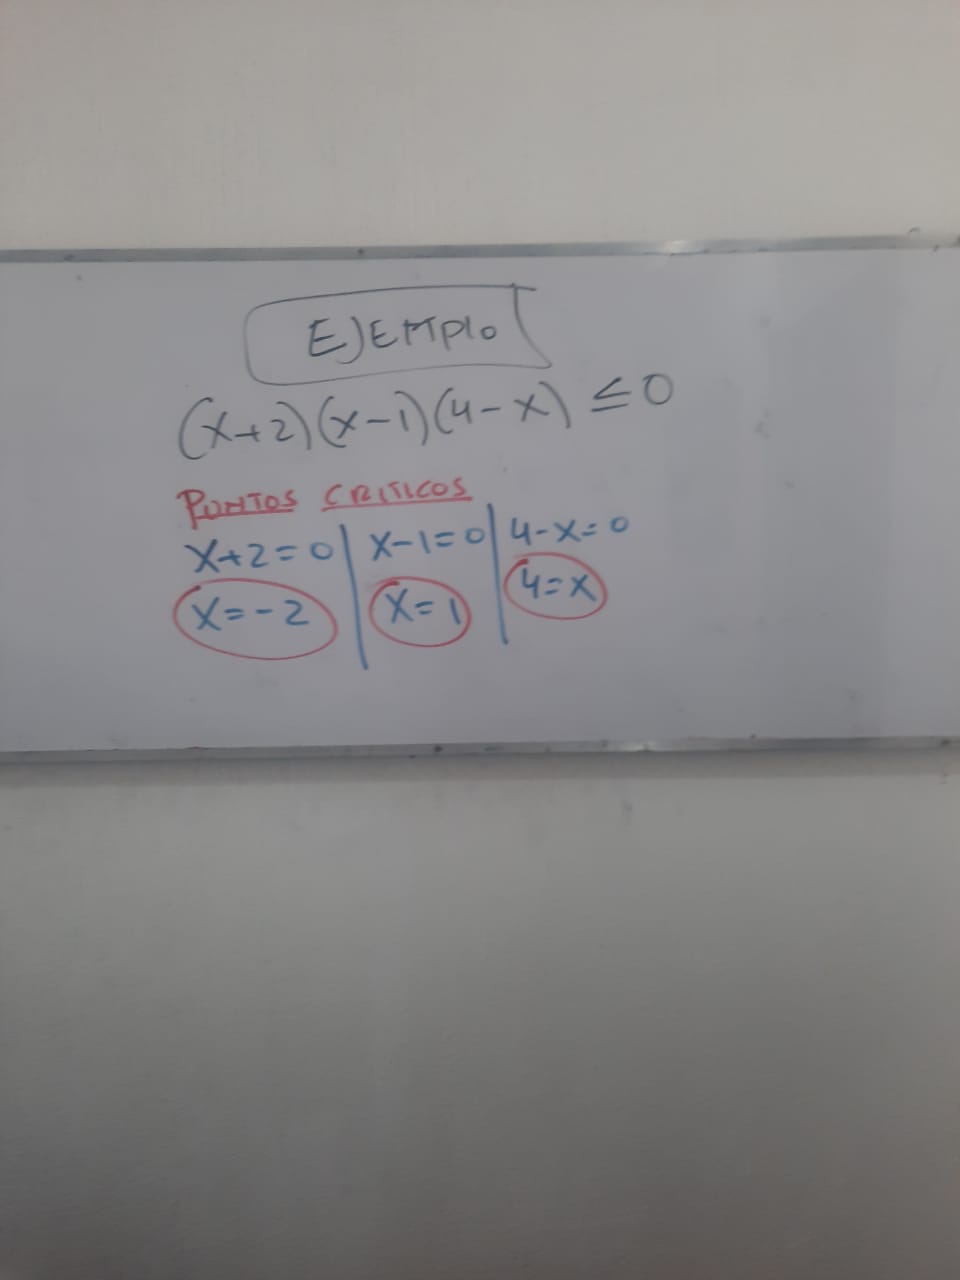 EJEMPlo
(x+2)(x-1)(4-x) ≤ 0
PUNTOS CRITICOS
x+2=0 | x-1=0 | 4-x=0
x=-2 | x=1 | 4=x